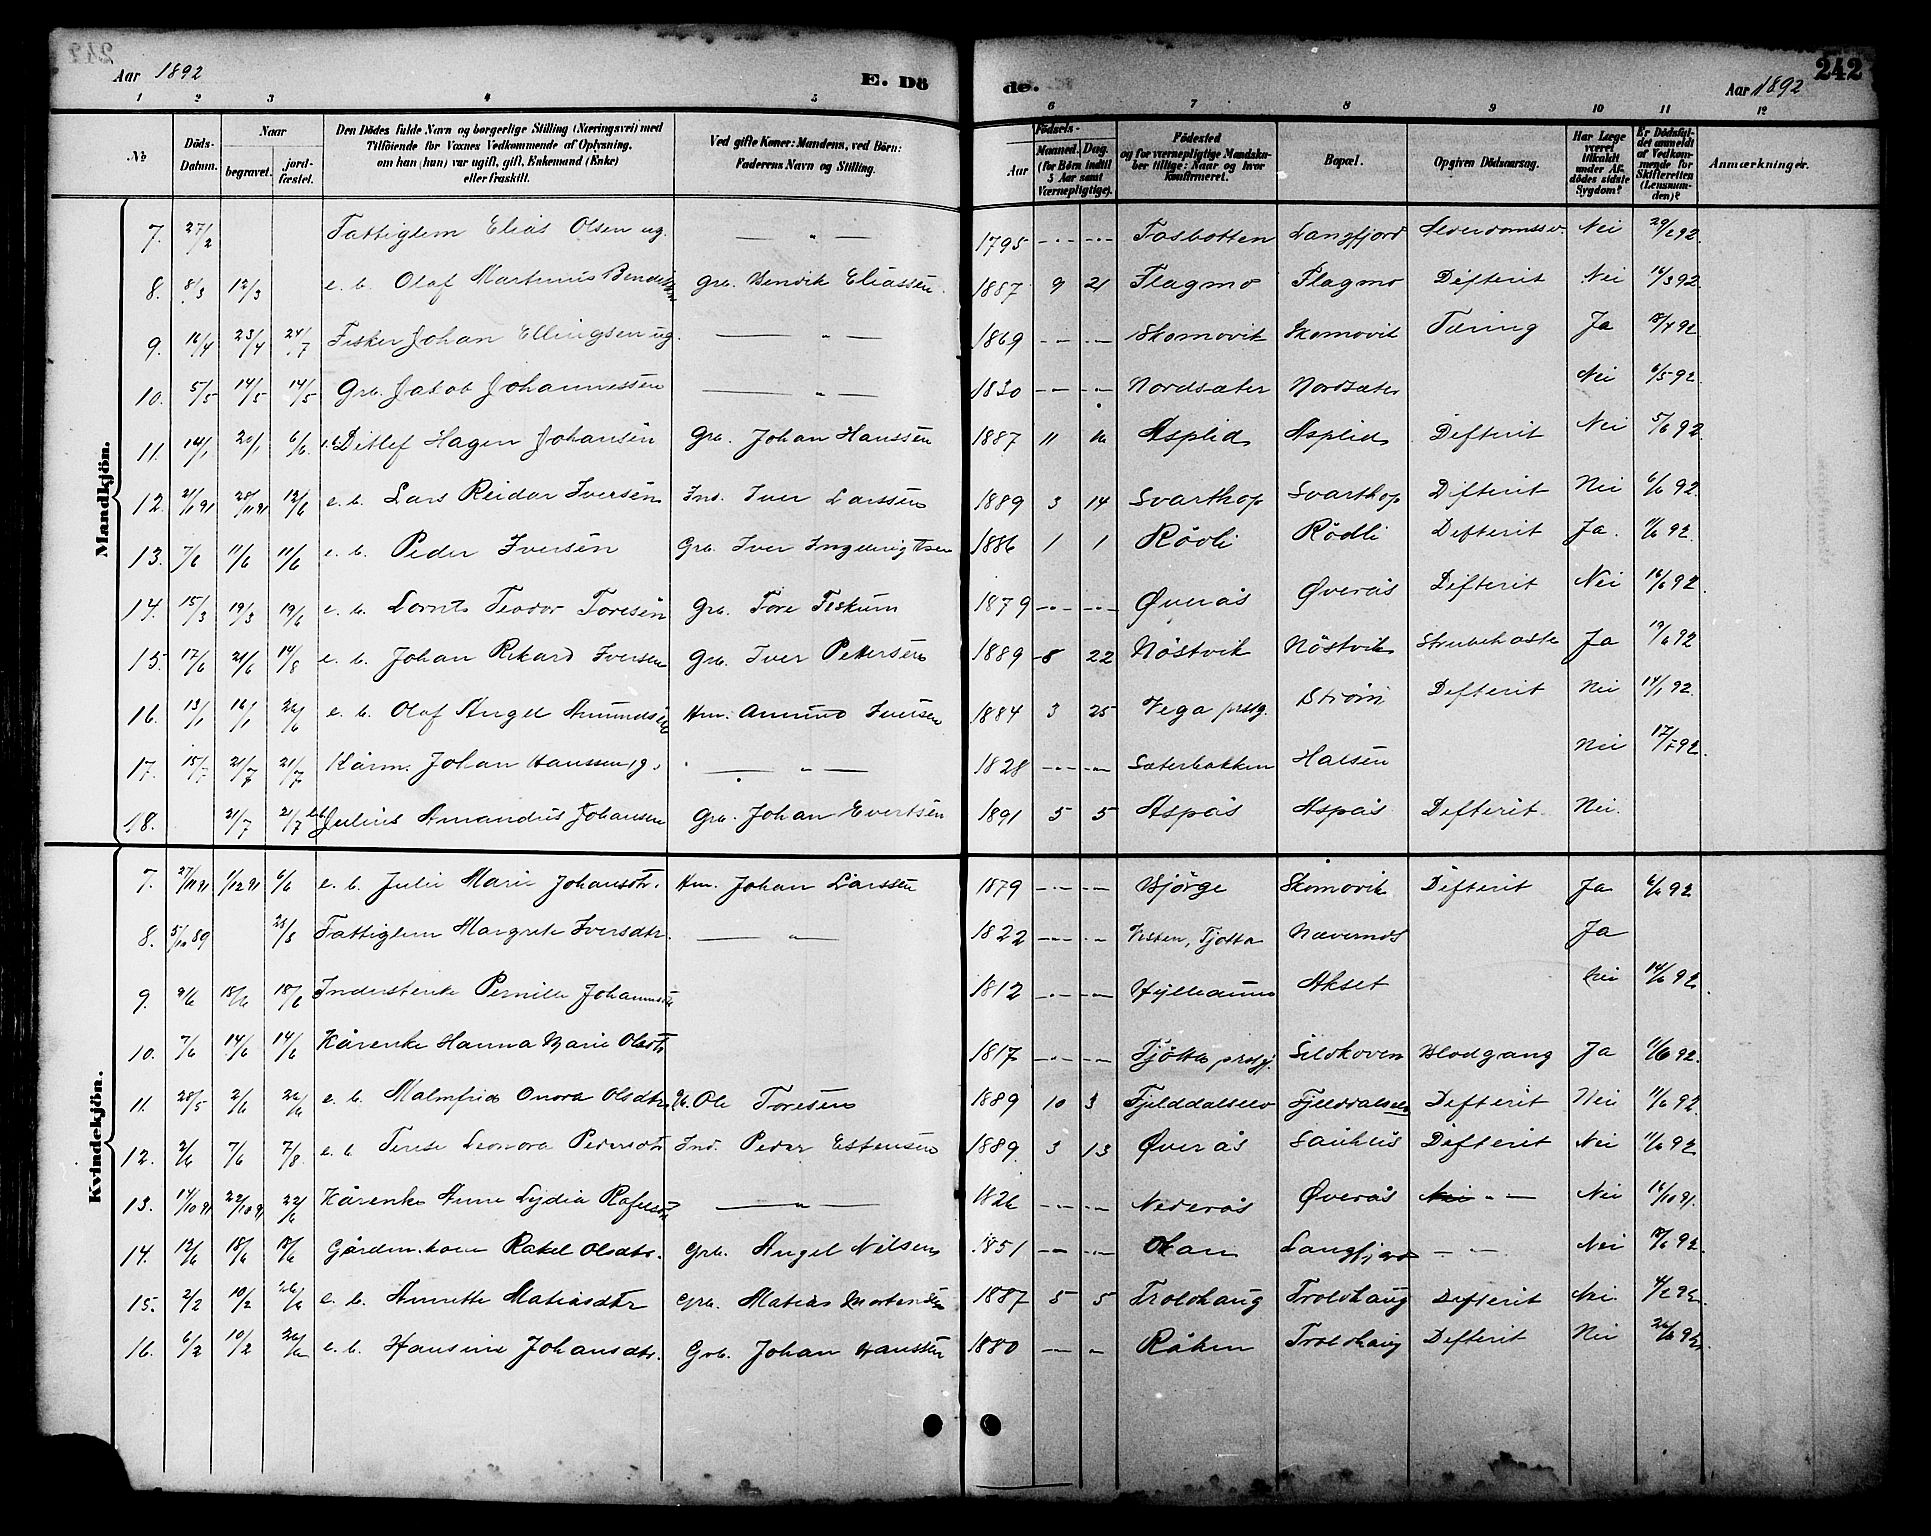 Aar 1892 E. Dö de. Aar 1892 242
1 2 3 4 5 6 7 8 9 10 11 12
No Döds-Datum. Naar begravet. jordfæstet. Den Dödes fulde Navn og borgerlige Stilling (Næringsvei) med Tilföiende for Voxnes Vedkommende af Oplysning, om han (hun) var ugift, gift, Enkemand (Enke) eller fraskilt. Ved gifte Koner: Mandens, ved Börn: Faderens Navn og Stilling. Födsels- Aar Maaned. Dag. (for Börn indtil 5 Aar samt Værnepligtige). Födested og for værnepligtige Mandskaber tillige: Naar og hvor Konfirmeret. Bopæl. Opgiven Dödsaarsag. Har Læge været tilkaldt under Afdödes sidste Sygdom? Er Dödsfaldet anmeldt af Vedkommende for Skifteretten (Lensmanden)? Anmærkninger.
Mandkjön.
7. 27/2 Fattiglem Elias Olsen ug. — „ — 1795 — — Fosbotten Langfjord Alderdomssv. Nei 29/2 92
8. 8/3 12/3 e. b. Olaf Martinus Bendiksen Grb. Bendik Eliassen 1887 9 21 Flagmo Flagmo Difterit Nei 16/3 92
9. 16/4 23/4 24/7 Fisker Johan Ellingsen ug. — „ — 1869 — — Skomovik Skomovik Tæring Ja 18/4 92
10. 5/5 14/5 14/5 Grb. Jakob Johannessen — „ — 1830 — — Nordsæter Nordsæter Nei 6/5 92
11. 14/1 20/1 6/6 e.b. Ditlef Hagen Johansen Grb. Johan Hanssen 1887 11 16 Asplid Asplid Difterit Nei 5/6 92
12. 21/11 91 28/11 91 12/6 e. b. Lars Reidar Iversen Ind. Iver Larssen 1889 3 14 Svarthop Svarthop Difterit Nei 6/6 92
13. 7/6 11/6 11/6 e. b. Peder Iversen Grb. Iver Ingebrigtsen 1886 1 1 Rödli Rödli Difterit Ja. 11/6 92
14. 15/3 19/3 19/6 e. b. Lornts Teodor Toresen Grb. Tore Fiskum 1879 — — Øverås Øverås Difterit Nei 16/6 92
15. 17/6 21/6 14/8 e. b. Johan Rikard Iversen Grb. Iver Pettersen 1889 8 22 Nöstvik Nöstvik Strubehoste Ja 19/6 92
16. 13/1 16/1 26/6 e. b. Olaf Angel Amundsen Hm. Amund Iversen 1884 3 25 Vega prstg. Ström Difterit Nei 14/1 92
17. 15/7 21/7 21/7 Kårm. Johan Hanssen g. — „ — 1828 — — Sæterbakken Halsen Nei 17/7 92
18. 21/7 21/7 e.b. Julius Amandus Johansen Grb. Johan Evertsen 1891 5 5 Aspås Aspås Difterit Nei.
Kvindekjön.
7. 27/11 91 1/12 91 6/6 e. b. Julie Marie Johansdtr. Hm. Johan Larssen 1879 — — Bjørge Skomovik Difterit Ja 6/6 92
8. 5/10 89 28/8 Fattiglem Margrete Iversdtr. — „ — 1822 — — Visten, Tjøtta Nævernes Ja
9. 9/6 18/6 18/6 Inderstenke Pernille Johannesdtr 1812 — — Hylleaune Akset Nei 14/6 92
10. 7/6 14/6 14/6 Kårenke Hanna Marie Olsdtr 1817 — — Tjøtta prstgj. Sildhoven Blodgang Ja 11/6 92
11. 28/5 2/6 26/6 e. b. Malmfrid Onora Olsdtr Gb. Ole Toresen 1889 10 3 Fjelddalselv Fjelddalselv Difterit Nei 11/6 92
12. 2/6 7/6 7/8 e. b. Terese Leonora Pedersdtr Ind. Peder Estensen 1889 3 13 Øverås Sauhus Difterit Nei 11/6 92
13. 14/10 91 22/10 91 22/6 Kårenke Anne Lydia Rafelsdtr — „ — 1826 — — Nederås Øverås — „ — Nei 16/10 91
14. 12/6 18/6 18/6 Gårdm.kone Rakel Olsdtr. Grb. Angel Nilsen 1851 — — Langfjord — „ — Nei 18/6 92
15. 2/2 10/2 26/6 e. b. Annette Matiasdtr Grb. Matias Mortensen 1887 5 5 Troldhaug Troldhaug Difterit Nei 4/2 92
16. 6/2 10/2 26/6 e. b. Hansine Johansdtr. Grb. Johan Hanssen 1880 — — Råken Troldhaug Difterit Nei 26/6 92